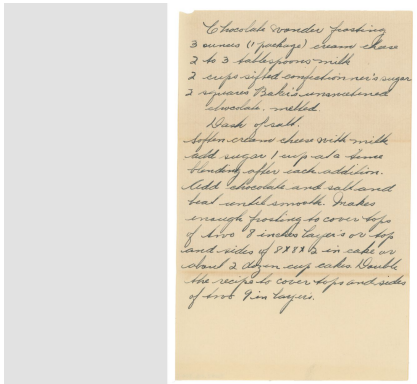 Chocolate wonder frosting
3 ounces (1 package) cream chese
2 to 3 tablespoons milk
2 cups sifted confection ner's sugar
2 squares Baker's unsweetened
chocolate. melted.
Dash of salt.
Soften cream cheese with milk
add sugar 1 cup at a time
blending after each addition.
Add chocolate and salt and
beat until smooth. Makes
enough frosting to cover tops
of two 8 inches layer's or top
and sides of 8X8X2 in cake or
about 2 dozen cup cakes Double
the recipe to cover tops and sides
of two 9 in layer's.